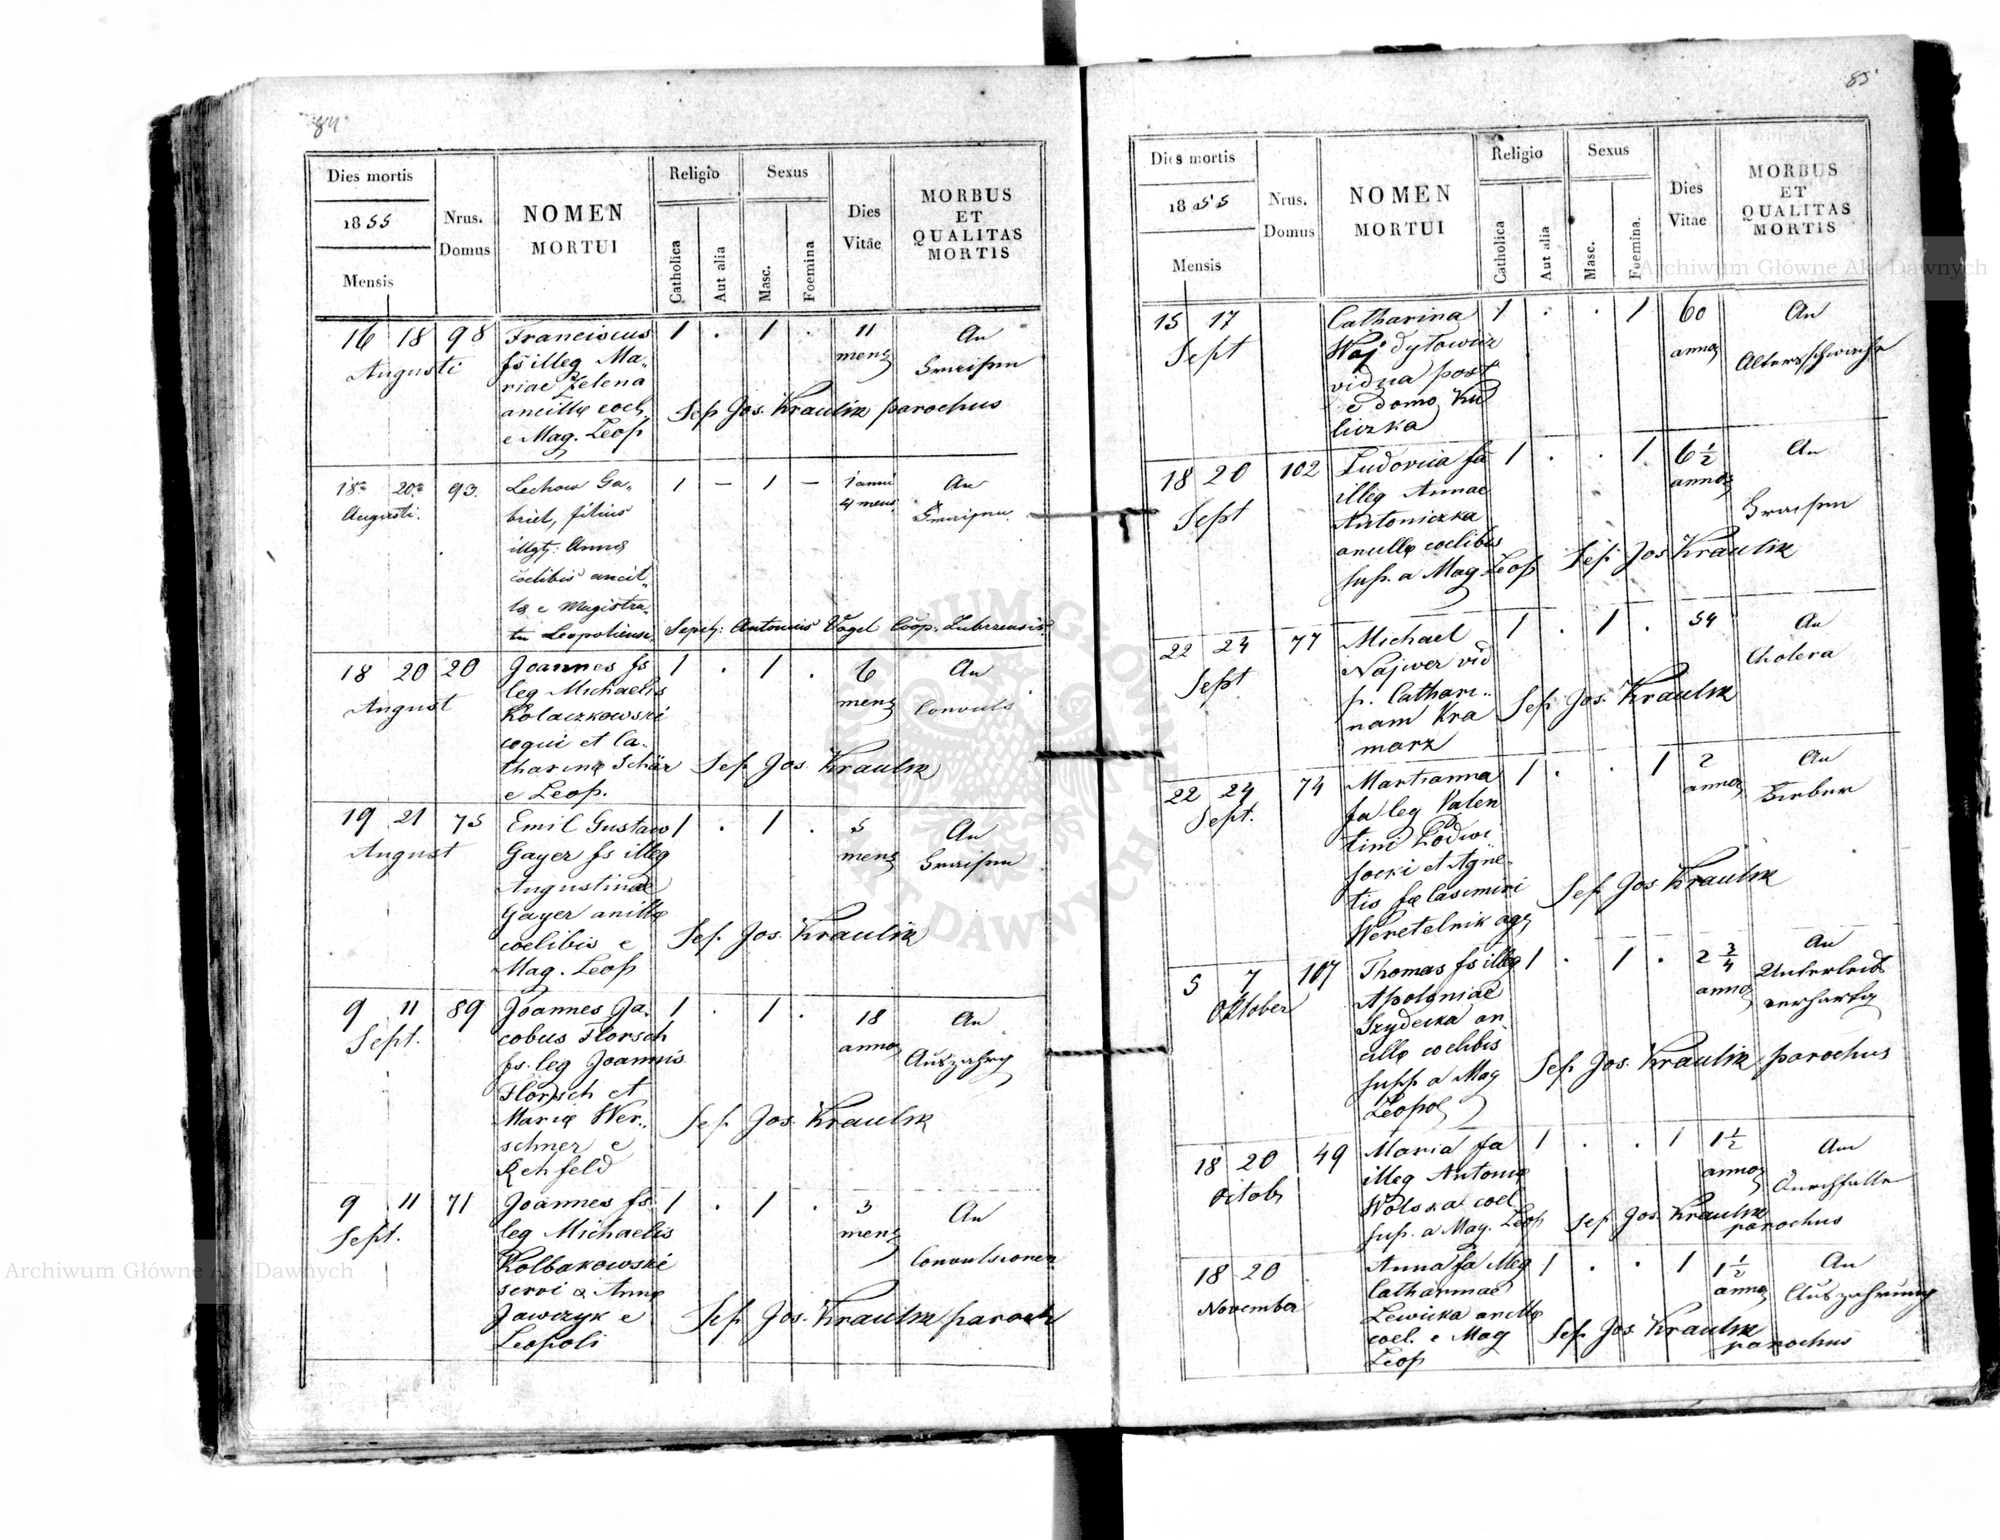 84
Dies mortis
1855
Mensis
Nrus. Domus
NOMEN MORTUI
Religio
Catholica
Aut alia
Sexus
Masc.
Foemina
Dies Vitae
MORBUS ET QUALITAS MORTIS
16 18 98 Franciscus 1 . 1 . 11 An
Augusti fs illeg Ma- mens
riae Zelena
ancillę coel.
Sep Jos. Kraulik parochus
e Mag. Leop
18a 20a 93. Lechow Ga- 1 – 1 – 1 anni An
Augusti. briel, filius 4 mens.
illgt: Annę
coelibis ancil-
lę e Magistra-
tu Leopoliensi. Sepel: Antonius Vogel Coop. Zubrzensis
18 20 20 Joannes fs 1 . 1 . 6 An
August leg Michaelis mens Convuls
Kolaczkowski
coqui et Ca-
tharinę Schär Sep Jos. Kraulik
e Leop.
19 21 75 Emil Gustaw 1 . 1 . 5 An
August Gayer fs illeg mens
Augustinae
Gayer ancillę
coelibis e Sep. Jos. Kraulik
Mag. Leop
9 11 89 Joannes Ja- 1 . 1 . 18 An
Sept. cobus Florsch anno Auszahrg
fs. leg Joannis
Florsch et
Marię Wer- Sep. Jos. Kraulik
schner e
Rehfeld
9 11 71 Joannes fs. 1 . 1 . 3 An
Sept. leg Michaelis mens
Kolbakowski Convulsionen
servi & Annę
Jawczyk e Sep Jos. Kraulik paroch
Leopoli
85
Dies mortis
1855
Mensis
Nrus. Domus
NOMEN MORTUI
Religio
Catholica
Aut alia
Sexus
Masc.
Foemina.
Dies Vitae
MORBUS ET QUALITAS MORTIS
15 17 Catharina 1 . . 1 60 An
Sept Wajdylowicz anno Altersschwäche
vidua post
e domo Ku
liczka
18 20 102 Ludovica fa 1 . . 1 6 1/2 An
Sept illeg Annae anno
Antoniczka
ancillę coelibis
sup. a Mag Leop Sep Jos Kraulik
22 24 77 Michael 1 . 1 . 54 An
Sept Najwer vid Cholera
p. Cathari-
nam Kra Sep Jos. Kraulik
marz
22 24 74 Marianna 1 . . 1 2 An
Sept. fa leg Valen anno Fieber
tini Podwi
socki et Agne-
tis fę Casimiri Sep Jos. Kraulik
Weretelnik agr
5 7 107 Thomas fs illeg 1 . 1 . 2 3/4 An
Oktober Apoloniae anno Unterleibs
Szydecka an- verhartg
cillę coelibis
supp a Mag Sep Jos. Kraulik parochus
Leopol
18 20 49 Maria fa 1 . . 1 1 1/2 Am
Octob illeg Antonię anno Durchfalle
Wolska coel
sup. a Mag. Leop Sep Jos. Kraulik parochus
18 20 Anna fa illeg 1 . . 1 1 1/2 An
November Catharinae anno Auszahrung
Lewicka ancillę
coel. e Mag Sep Jos Kraulik parochus
Leop
Archiwum Główne Akt Dawnych
Archiwum Główne Akt Dawnych
ARCHIWUM GŁÓWNE AKT DAWNYCH